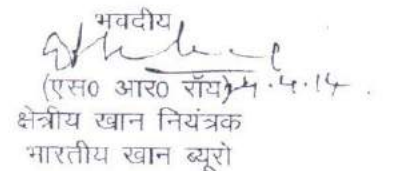 भवदीय
(एस0 आर0 रॉय) 4.14
क्षेत्रीय खान नियंत्रक
भारतीय खान ब्यूरो